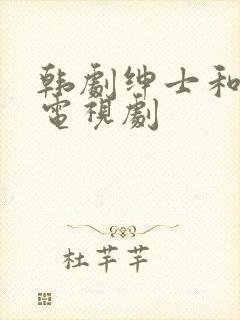 韩劇绅士和
電視劇
杜芊芊